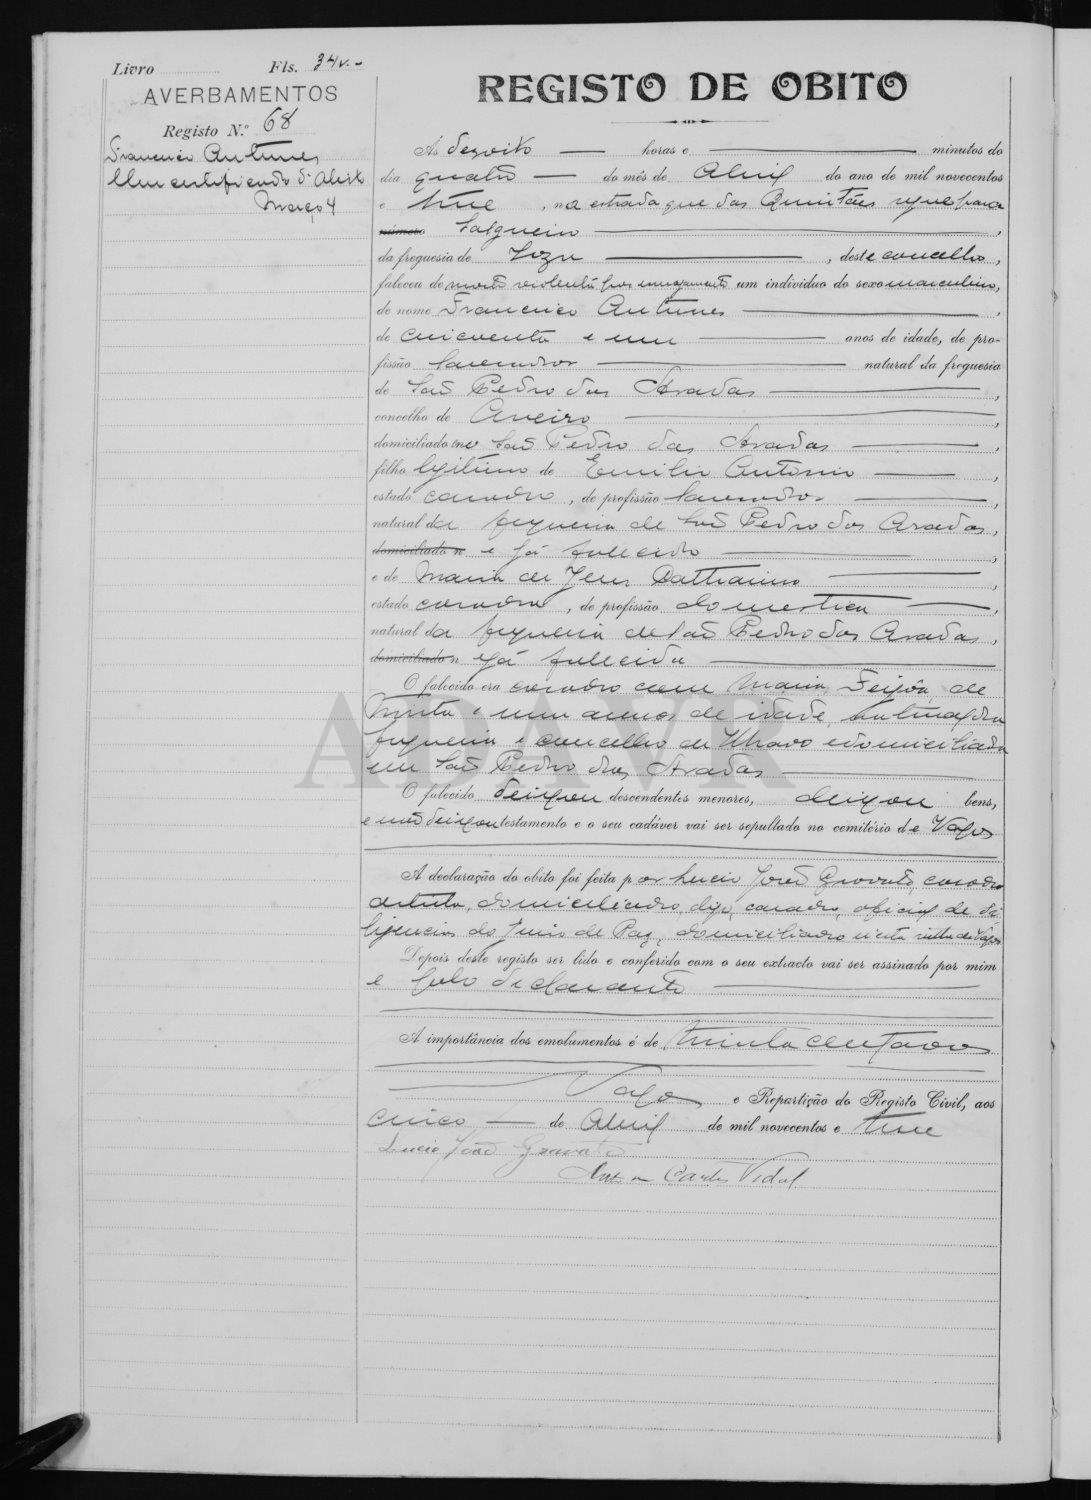 Livro Fls. 34v.-
AVERBAMENTOS
Registo N.º 68
Francisco Antunes
Um certificado d'
Março 4
REGISTO DE OBITO
Às desoito horas e minutos do
dia quatro do mês de Abril do ano de mil novecentos
e treze, na estrada que das Quintães segue para
número Salgueiro,
da freguesia de Soza, deste concelho,
faleceu de morte violenta por um individuo do sexo masculino,
de nome Francisco Antunes,
de cincoenta e um anos de idade, de pro-
fissão lavrador natural da freguesia
de São Pedro das Aradas,
concelho de Aveiro
domiciliado em São Pedro das Aradas,
filho legitimo de Antonio,
estado casado, de profissão lavrador,
natural da freguesia de São Pedro das Aradas,
domiciliado n e já fallecido
e de Maria de Jesus,
estado casada, de profissão domestica,
natural da freguesia de São Pedro das Aradas,
domiciliado n e já fallecida
O falecido era casado com Maria Feijôa, de
trinta e um annos de idade, natural da
freguesia e concelho de Ilhavo e domiciliada
em São Pedro das Aradas
O falecido deixou descendentes menores, deixou bens,
e não deixou testamento e o seu cadáver vai ser sepultado no cemitério de Vagos
A declaração do obito foi feita por Lucio João Gravato, casado
artista, domiciliado, digo, casado, oficial de di-
ligencias do Juizo de Paz, domiciliado n'esta villa de Vagos
Depois deste registo ser lido e conferido com o seu extracto vai ser assinado por mim
e pelo declarante
A importância dos emolumentos é de trinta centavos
Vagos e Repartição do Registo Civil, aos
cinco de Abril de mil novecentos e treze
Lucio João Gravato
Carlos Vidal
ADAVR